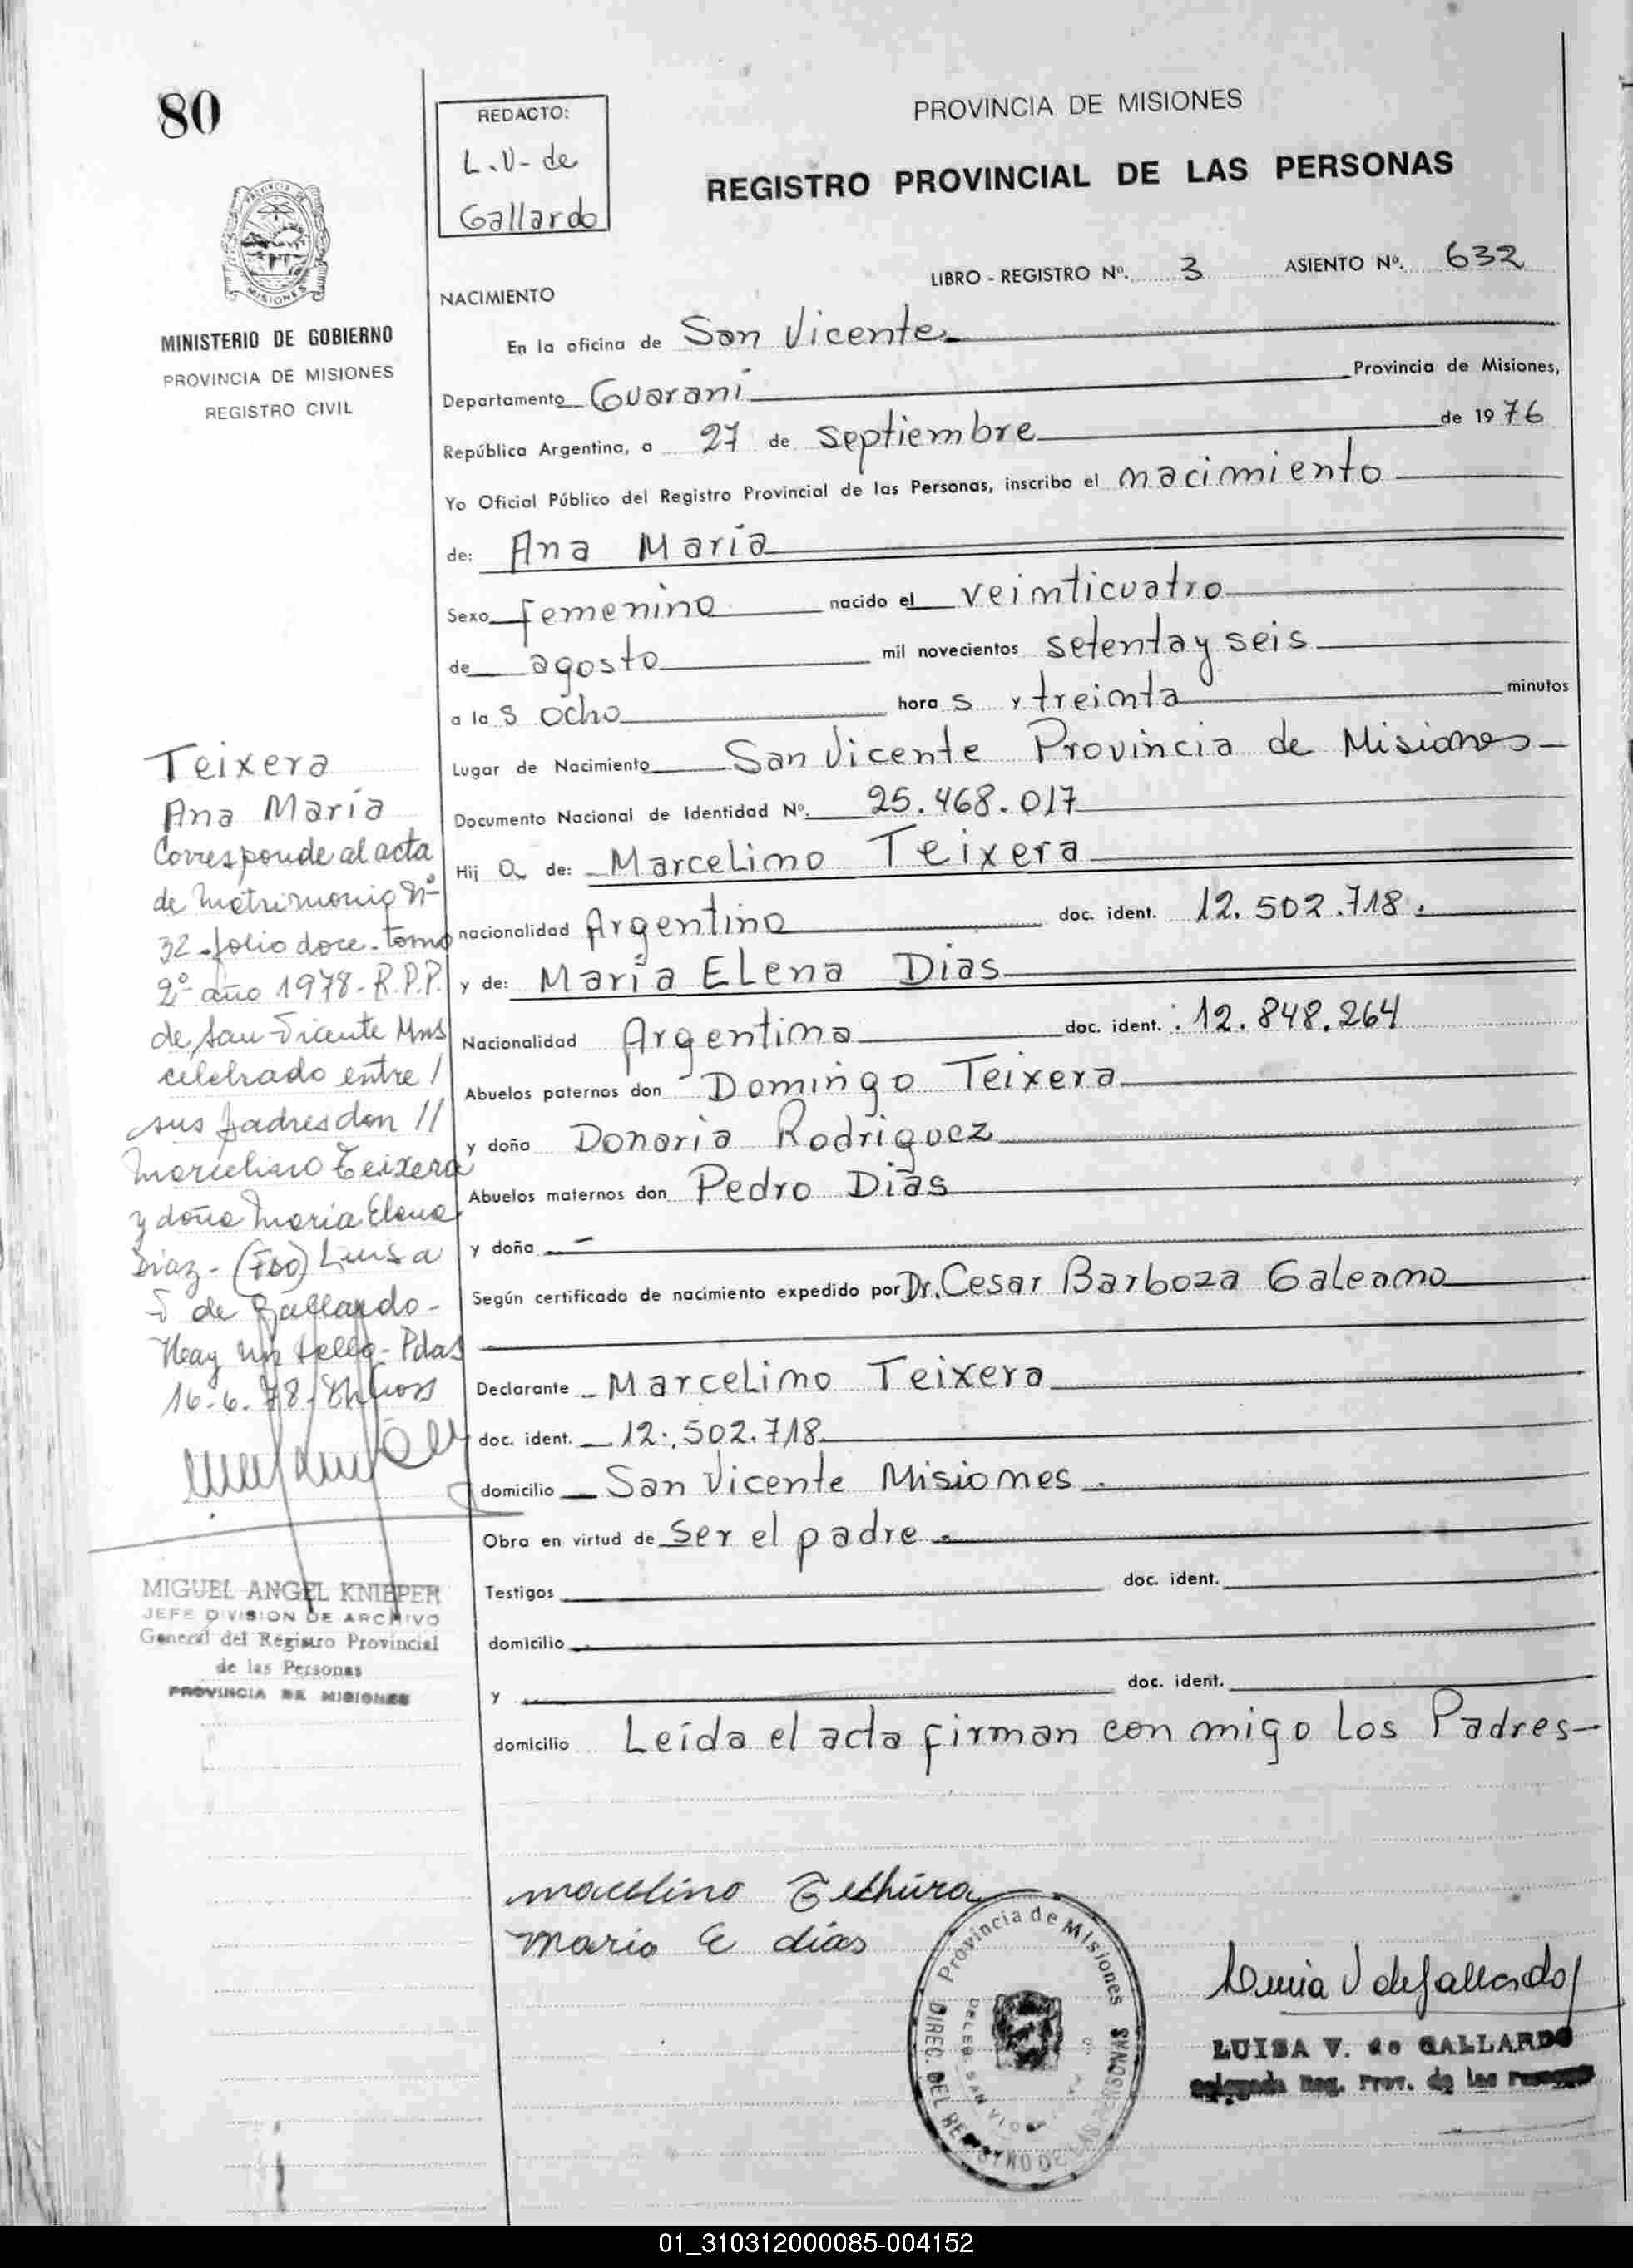 80
PROVINCIA DE MISIONES
MINISTERIO DE GOBIERNO
PROVINCIA DE MISIONES
REGISTRO CIVIL
REDACTO:
L.V- de
Gallardo
PROVINCIA DE MISIONES
REGISTRO PROVINCIAL DE LAS PERSONAS
LIBRO - REGISTRO Nº. 3 ASIENTO Nº. 632
NACIMIENTO
En la oficina de San Vicente
Departamento Guaraní Provincia de Misiones,
República Argentina, a 27 de septiembre de 1976
Yo Oficial Público del Registro Provincial de las Personas, inscribo el nacimiento
de: Ana María
Sexo femenino nacido el veinticuatro
de agosto mil novecientos setenta y seis
a las ocho horas y treinta minutos
Lugar de Nacimiento San Vicente Provincia de Misiones
Documento Nacional de Identidad Nº. 25.468.017
Hija de: Marcelino Teixera
nacionalidad Argentino doc. ident. 12.502.718.
y de: María Elena Dias
Nacionalidad Argentina doc. ident. : 12.848.264
Abuelos paternos don Domingo Teixera
y doña Donaria Rodriguez
Abuelos maternos don Pedro Dias
y doña -
Según certificado de nacimiento expedido por Dr. Cesar Barboza Galeano
Declarante Marcelino Teixera
doc. ident. 12.502.718
domicilio San Vicente Misiones.
Obra en virtud de ser el padre.
Testigos doc. ident.
domicilio
y doc. ident.
domicilio Leída el acta firman con migo Los Padres-
Teixera
Ana María
Corresponde al acta
de matrimonio Nº
32-folio doce-tomo
2º año 1978-R.P.P.
de San Vicente Mns
celebrado entre /
sus padres don //
Marcelino Teixera
y doña María Elena
Diaz- (FDO) Luisa
V de Gallardo-
Hay un sello- Pdas
16-6-78-
MIGUEL ANGEL KNIEPER
JEFE DIVISION DE ARCHIVO
General del Registro Provincial
de las Personas
PROVINCIA DE MISIONES
marcelino
maria E dias
Provincia de Misiones
DIREC. DEL REGISTRO DE LAS PERSONAS
Luisa V de Gallardo
LUISA V. de GALLARDO
Delegada Reg. Prov. de las Personas
01_310312000085-004152